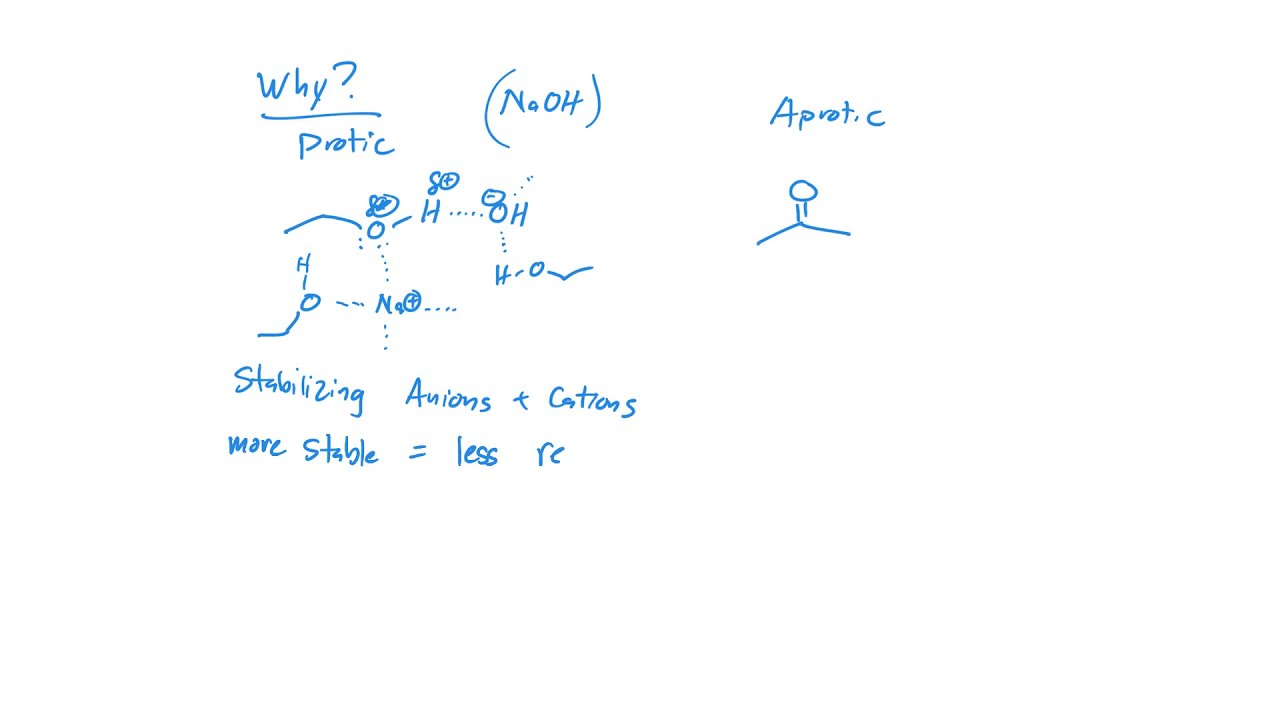 Why?
Protic
(NaOH)
Aprotic
δ⊕
H
⊖
OH
O
H
O
Na⊕
H-O
O
Stabilizing Anions + Cations
more stable = less re